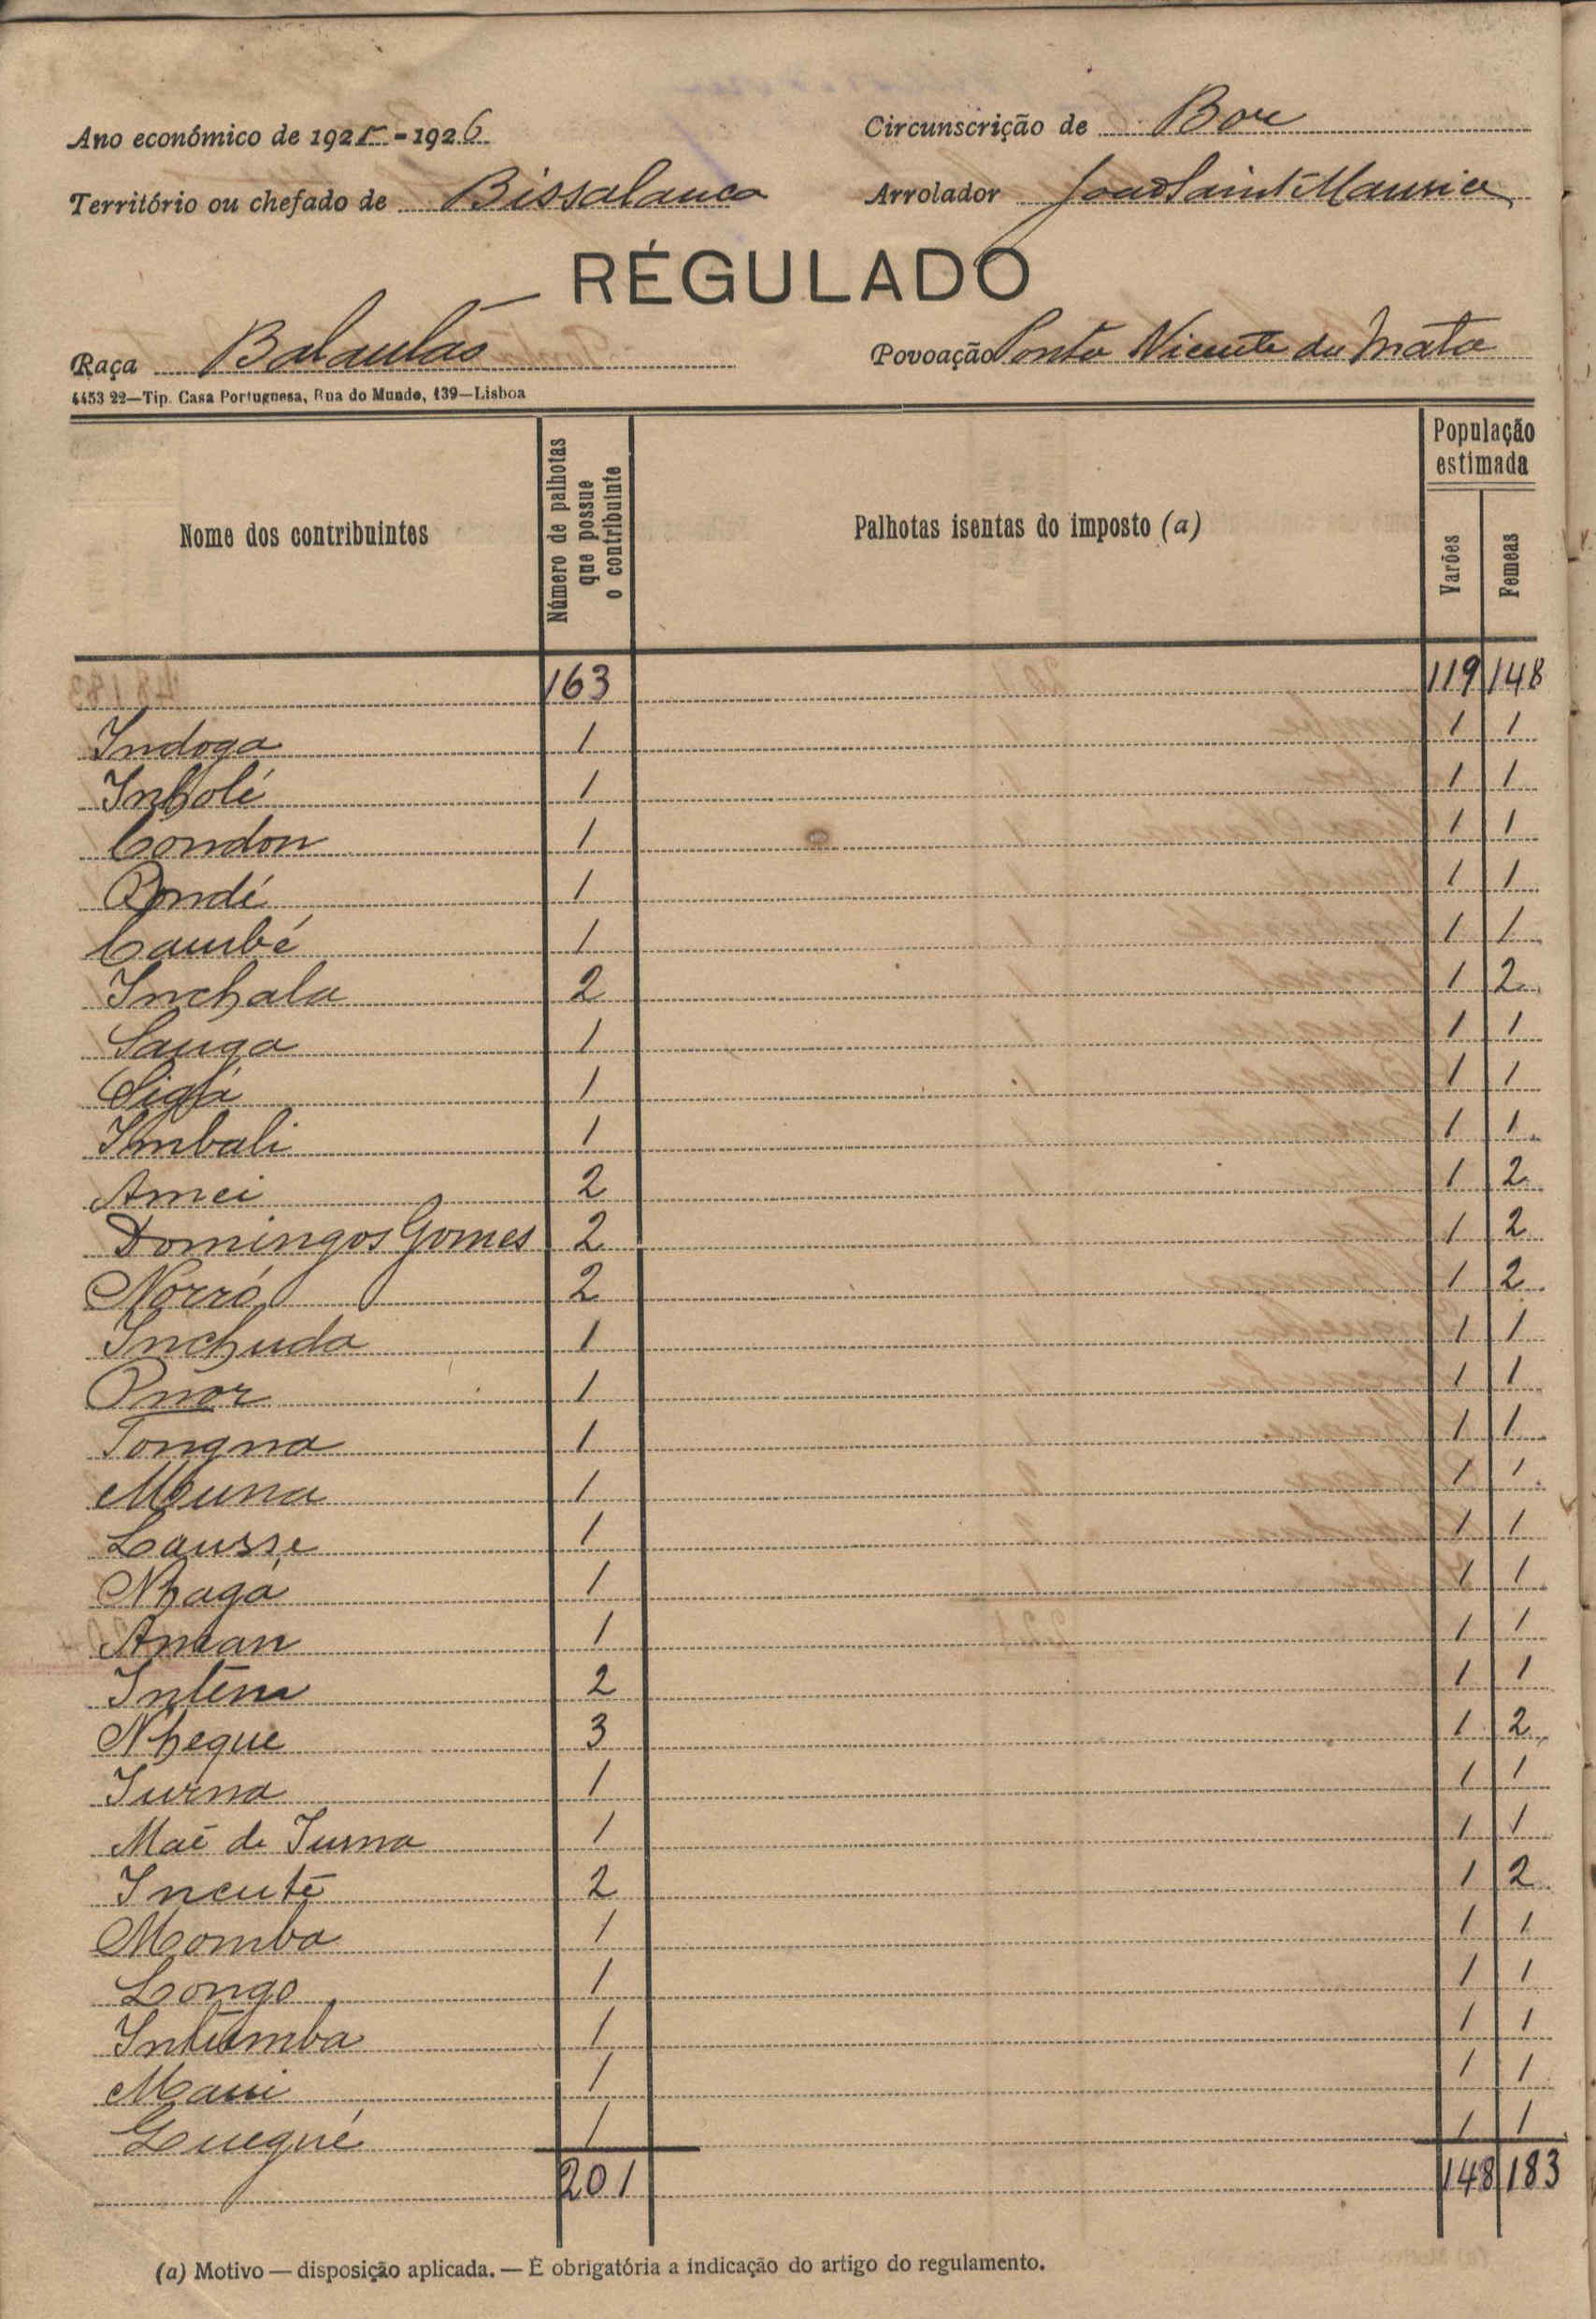 Ano económico de 1925-1926 Circunscrição de Bor
Território ou chefado de Bissalanca Arrolador João Saint'Maurice
RÉGULADO
Raça Balantas Povoação Ponta Vicente da Mata
4453 22—Tip. Casa Portuguesa, Rua do Mundo, 139—Lisboa
Nome dos contribuintes Número de palhotas que possue o contribuinte Palhotas isentas do imposto (a) População estimada Varões Femeas
163 119 148
Indoga 1 1 1
Inbolé 1 1 1
Condon 1 1 1
Ondé 1 1 1
Cambé 1 1 1
Inchala 2 1 2
Sanga 1 1 1
Sigfá 1 1 1
Imbali 1 1 1
Amei 2 1 2
Domingos Gomes 2 1 2
Norró 2 1 2
Inchuda 1 1 1
1 1 1
Tongna 1 1 1
Muna 1 1 1
Lausse 1 1 1
Nhaga 1 1 1
1 1 1
Intem 2 1 1
Nheque 3 1 2
Iurna 1 1 1
Maé de Iurna 1 1 1
Incuté 2 1 2
Momba 1 1 1
Longo 1 1 1
Intumba 1 1 1
Maui 1 1 1
Luequé 1 1 1
201 148 183
(a) Motivo — disposição aplicada. — É obrigatória a indicação do artigo do regulamento.